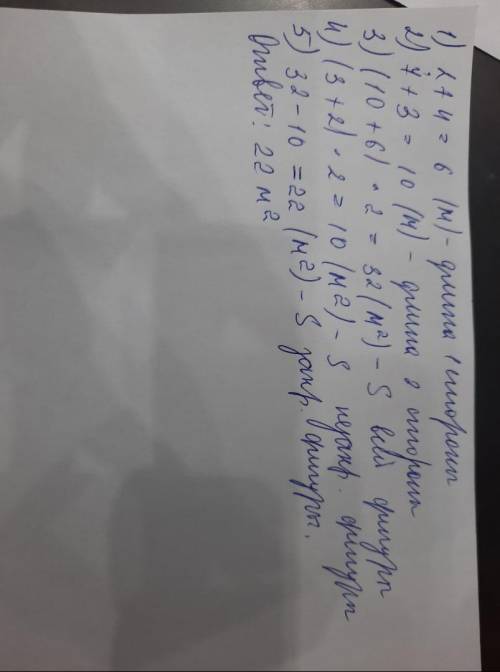 1) 2+4 = 6 (м) - длина 1 стороны
2) 7+3 = 10 (м) - длина 2 стороны
3) (10+6) · 2 = 32 (м²) - S всей фигуры
4) (3+2) · 2 = 10 (м²) - S незакр. фигуры
5) 32-10 = 22 (м²) - S закр. фигуры.
Ответ: 22 м²